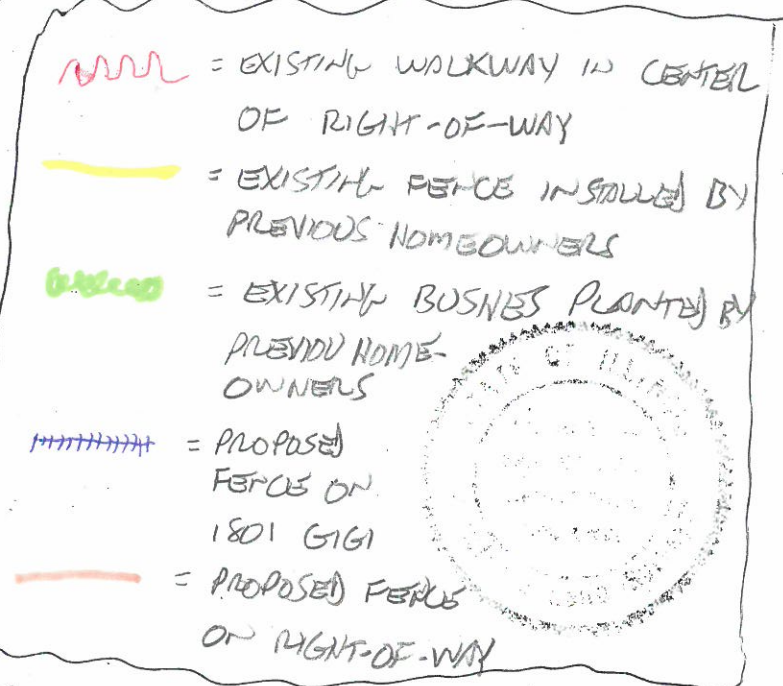 = EXISTING WALKWAY IN CENTER
OF RIGHT-OF-WAY
= EXISTING FENCE INSTALLED BY
PREVIOUS HOMEOWNERS
= EXISTING BUSHES PLANTED BY
PREVIOU HOME-
OWNERS
= PROPOSED
FENCE ON
1801 GIGI
= PROPOSED FENCE
ON RIGHT-OF-WAY
STATE OF